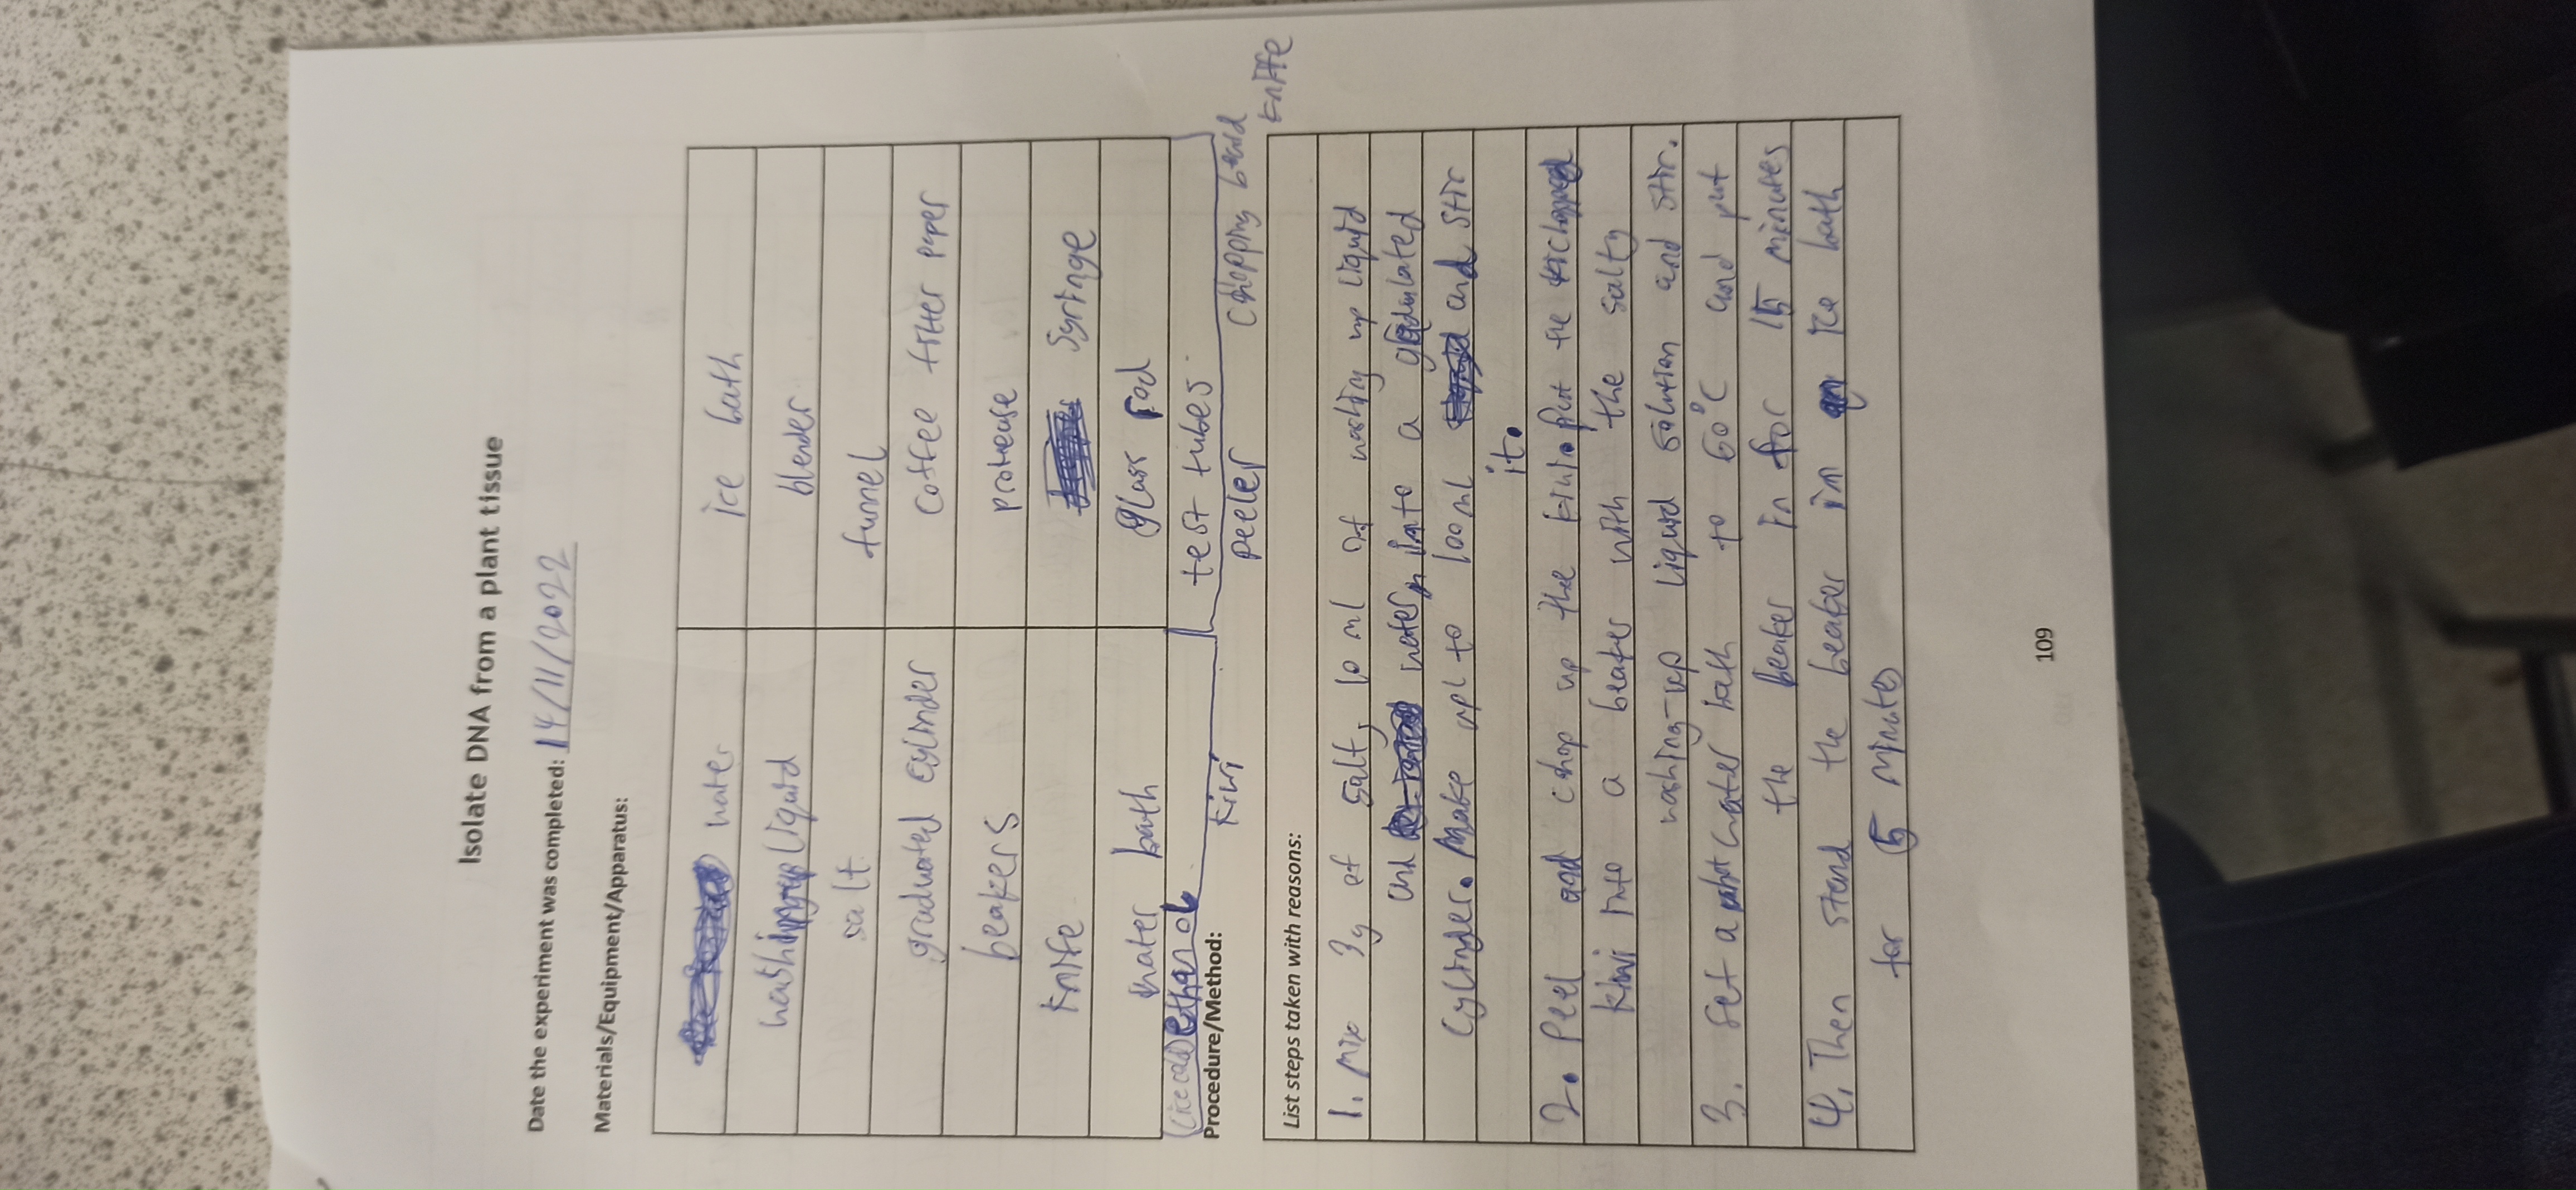 Isolate DNA from a plant tissue
Date the experiment was completed: 14/11/2022
Materials/Equipment/Apparatus:
water
ice bath
washing-up liquid
blender
salt
funnel
graduated cylinder
coffee filter paper
beakers
protease
knife
syringe
water bath
glass rod
(ice cold) ethanol
test tubes
Procedure/Method:
kiwi
peeler
chopping board
knife
List steps taken with reasons:
1. Mix 3g of salt, 10 ml of washing up liquid
and water into a
cylinder. Make up to 100ml and stir
it.
2. Peel and chop up the kiwi. Put the chopped
kiwi into a beaker with the salty
washing-up liquid solution and stir.
3. Set a water bath to 60°C and put
the beaker in for 15 minutes
4. Then stand the beaker in an ice bath
for 5 minutes
109